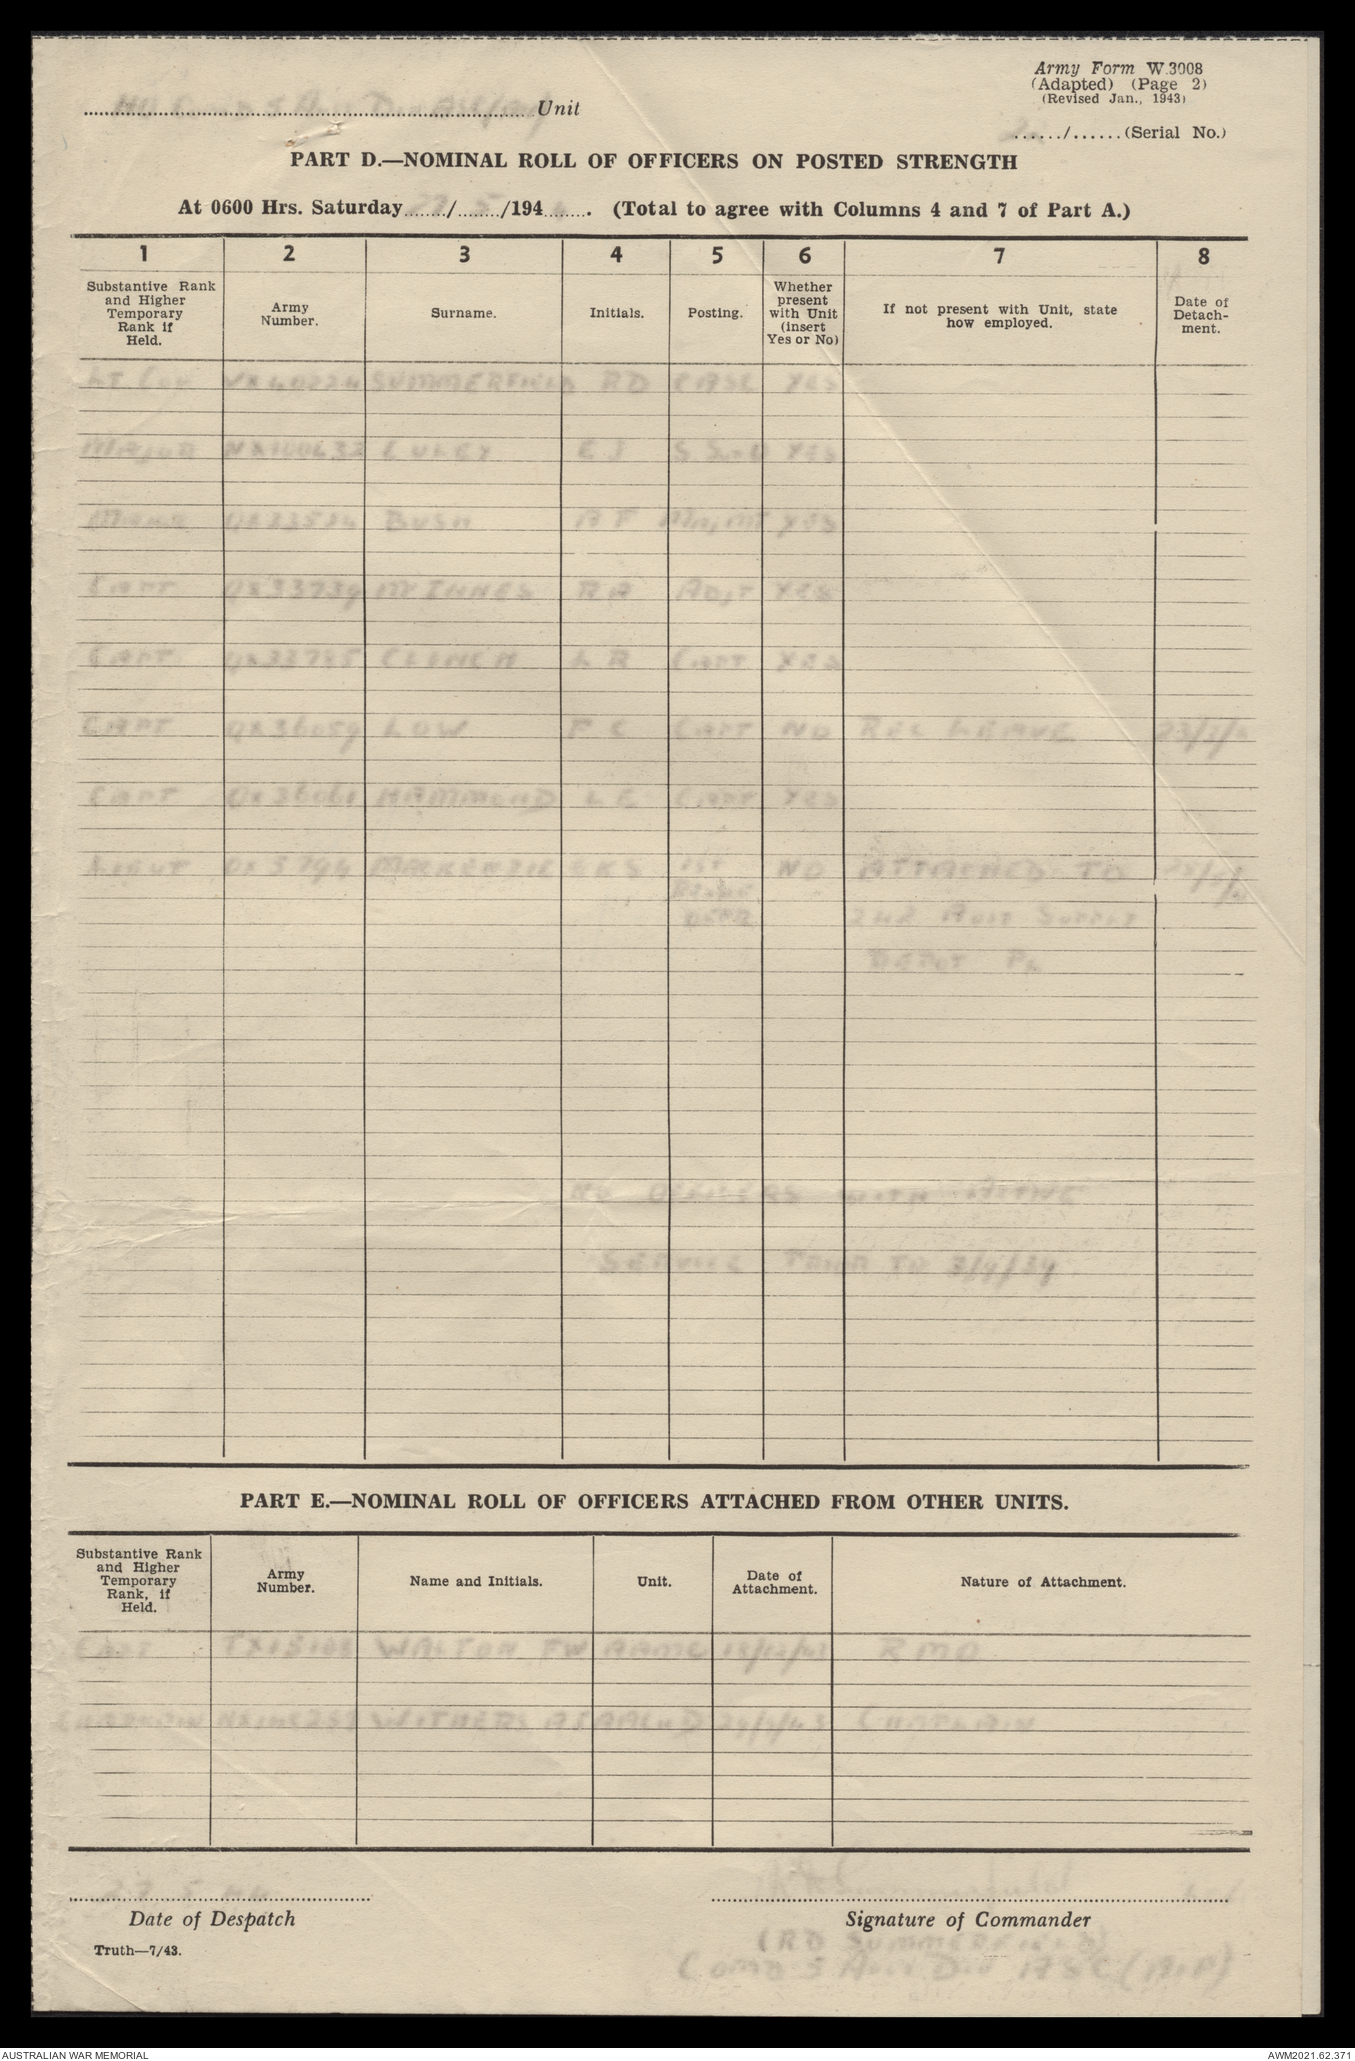 Army Form W.3008
(Adapted) (Page 2)
(Revised Jan., 1943)
HQ Comd 5 Aust Div AASC (AIF) Unit
....../......(Serial No.)
PART D.—NOMINAL ROLL OF OFFICERS ON POSTED STRENGTH
At 0600 Hrs. Saturday 27/5/194 4. (Total to agree with Columns 4 and 7 of Part A.)
1 2 3 4 5 6 7 8
Substantive Rank and Higher Temporary Rank if Held. Army Number. Surname. Initials. Posting. Whether present with Unit (insert Yes or No) If not present with Unit, state how employed. Date of Detachment.
LT COL VX40224 SUMMERFIELD RD CASC YES
MAJOR NX100632 E J YES
MAJOR BUSH A F YES
CAPT QX33739 McINNES R A ADJT YES
CAPT QX33785 L R CAPT YES
CAPT QX36059 LOW F C CAPT NO REC LEAVE
CAPT QX36061 HAMMOND L E CAPT YES
LIEUT MACKENZIE NO ATTACHED TO
AUST SUPPLY
DEPOT PL
NO OFFICERS WITH ACTIVE
SERVICE PRIOR TO 3/9/39
PART E.—NOMINAL ROLL OF OFFICERS ATTACHED FROM OTHER UNITS.
Substantive Rank and Higher Temporary Rank, if Held. Army Number. Name and Initials. Unit. Date of Attachment. Nature of Attachment.
CAPT WALTON FW AAMC RMO
CHAPLAIN WITHERS CHAPLAIN
27 5 44
Date of Despatch Signature of Commander
(RD SUMMERFIELD)
Truth—7/43.
COMD 5 AUST DIV ASC (AIF)
AUSTRALIAN WAR MEMORIAL AWM2021.62.371